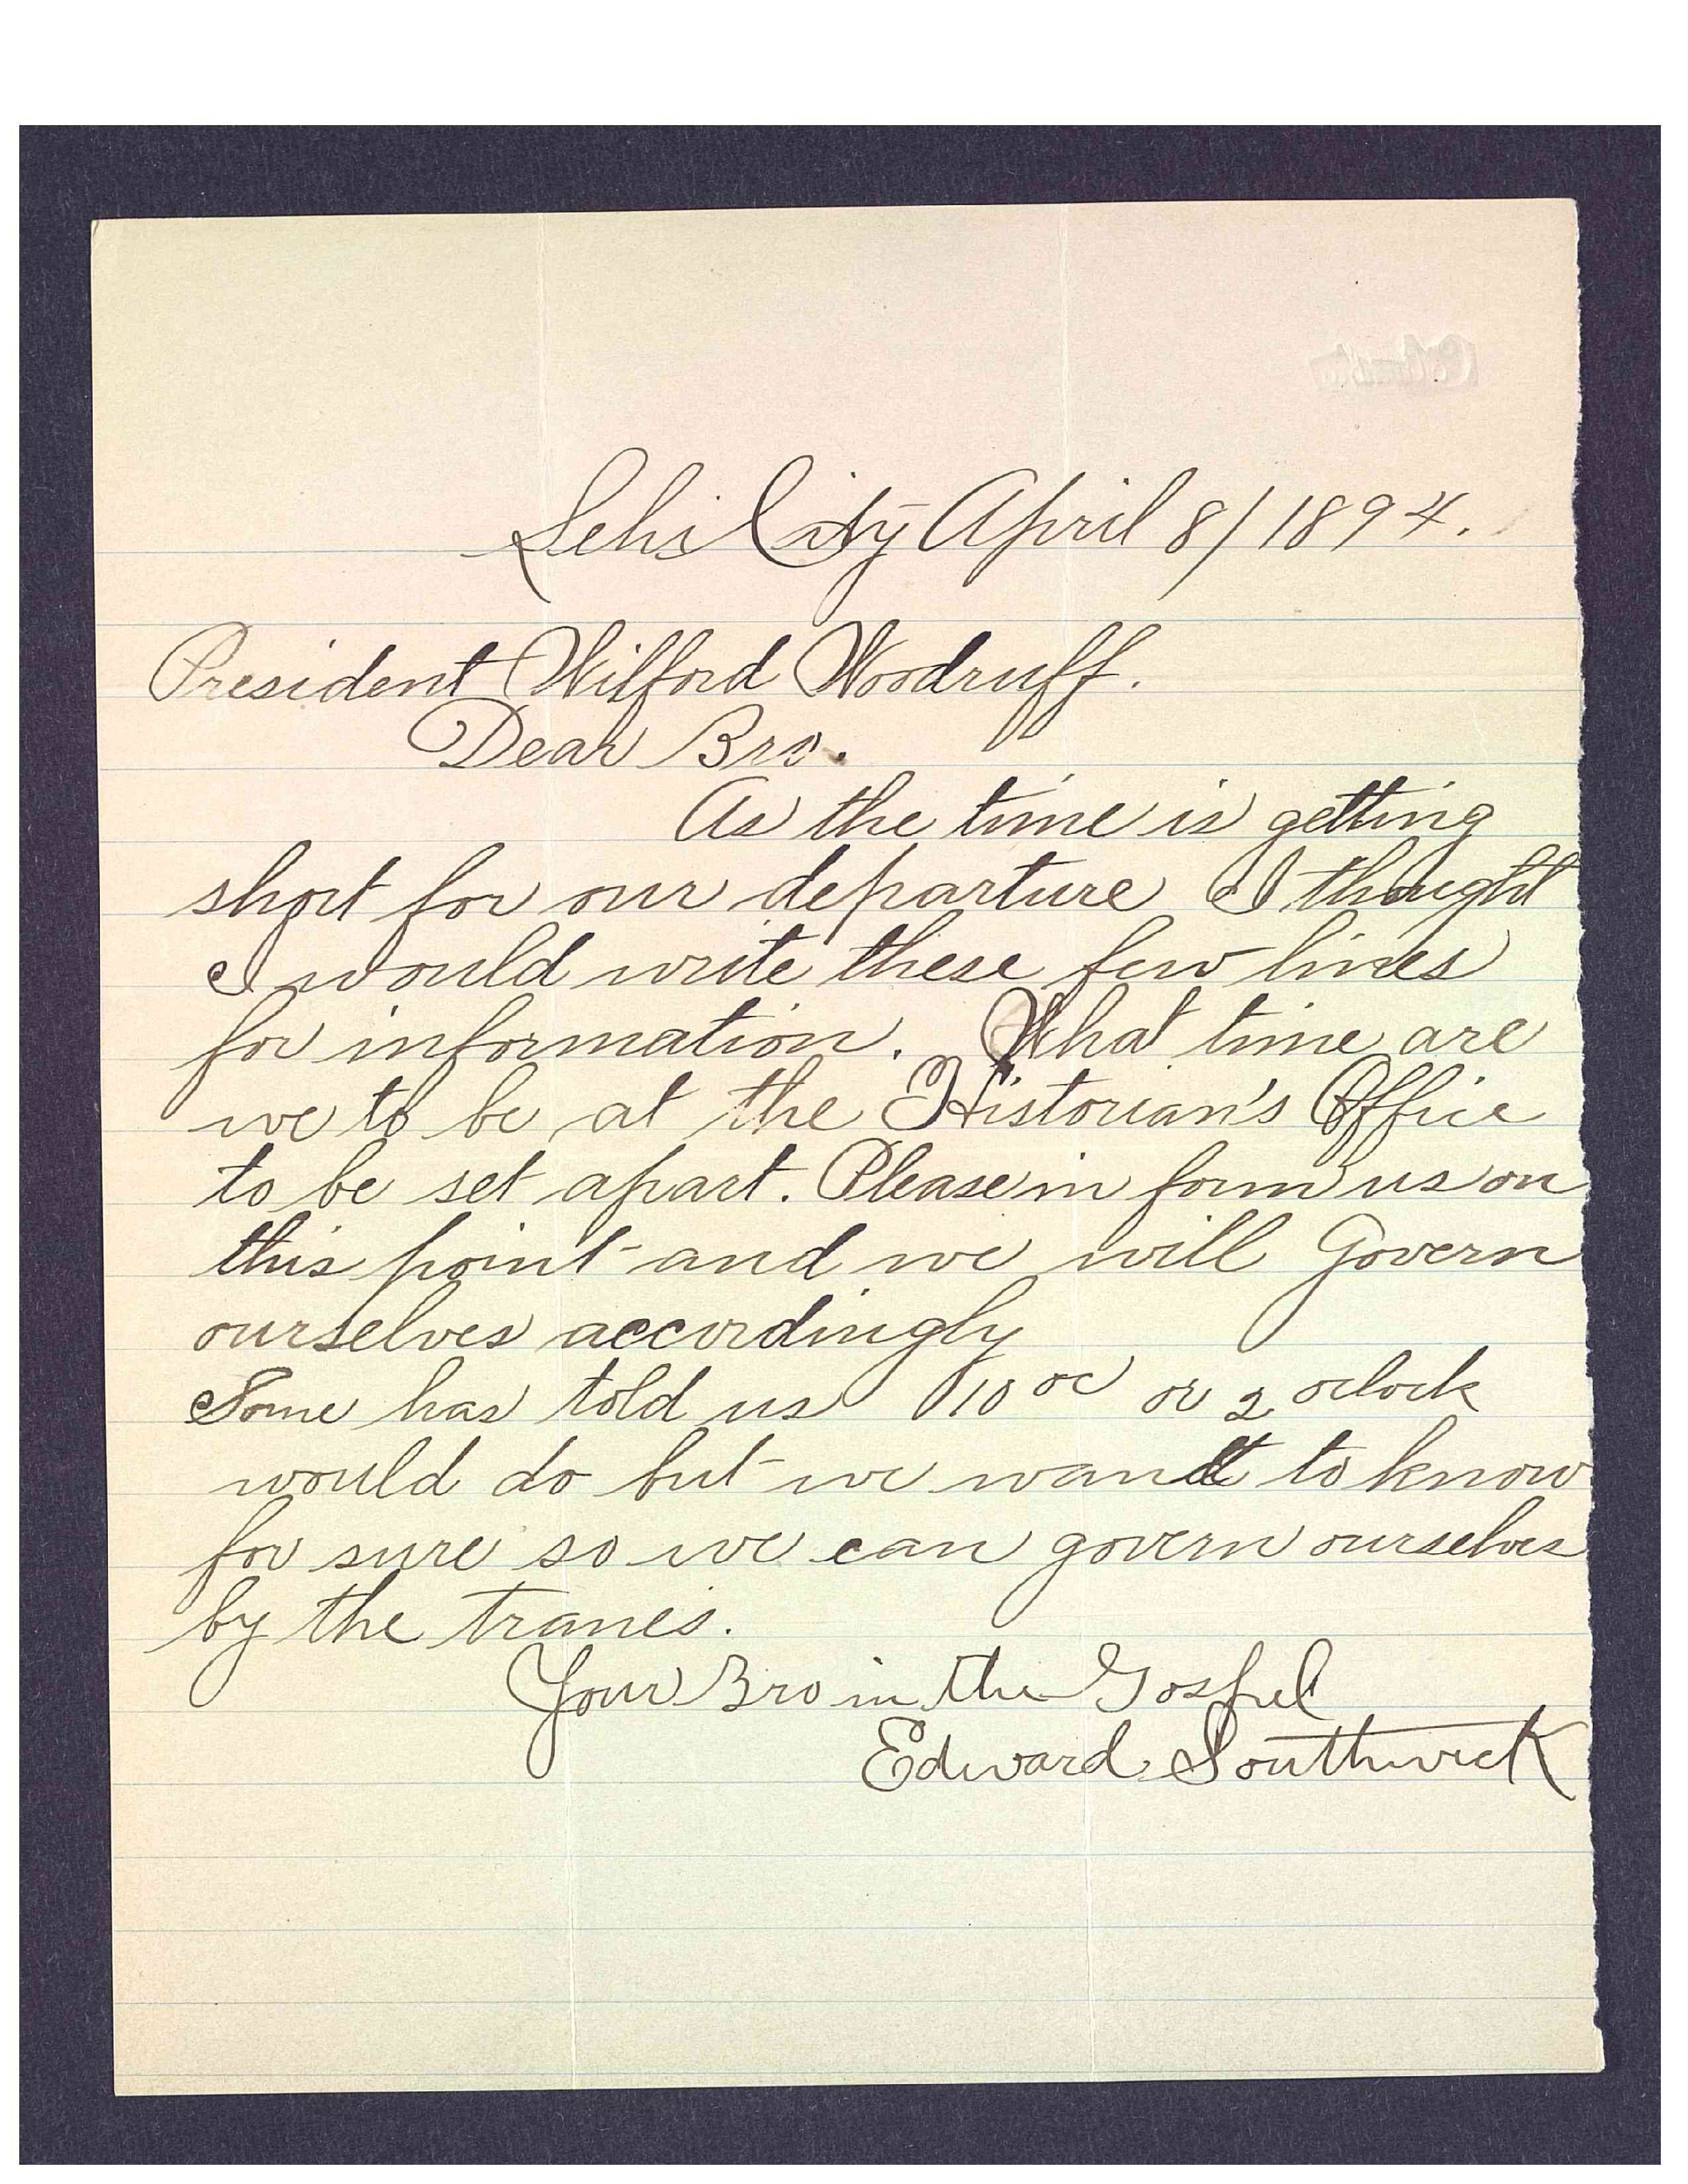 Lehi City April 8/1894.
President Wilford Woodruff.
Dear Bro.
As the time is getting
short for our departure I thought
I would write these few lines
for information. What time are
we to be at the Historian's Office
to be set apart. Please in form us on
this point and we will Govern
ourselves accordingly
Some has told us 10 oc or 2 oclock
would do but we want to know
for sure so we can govern ourselves
by the tranes.
Your Bro in the Gospel
Edward Southwick